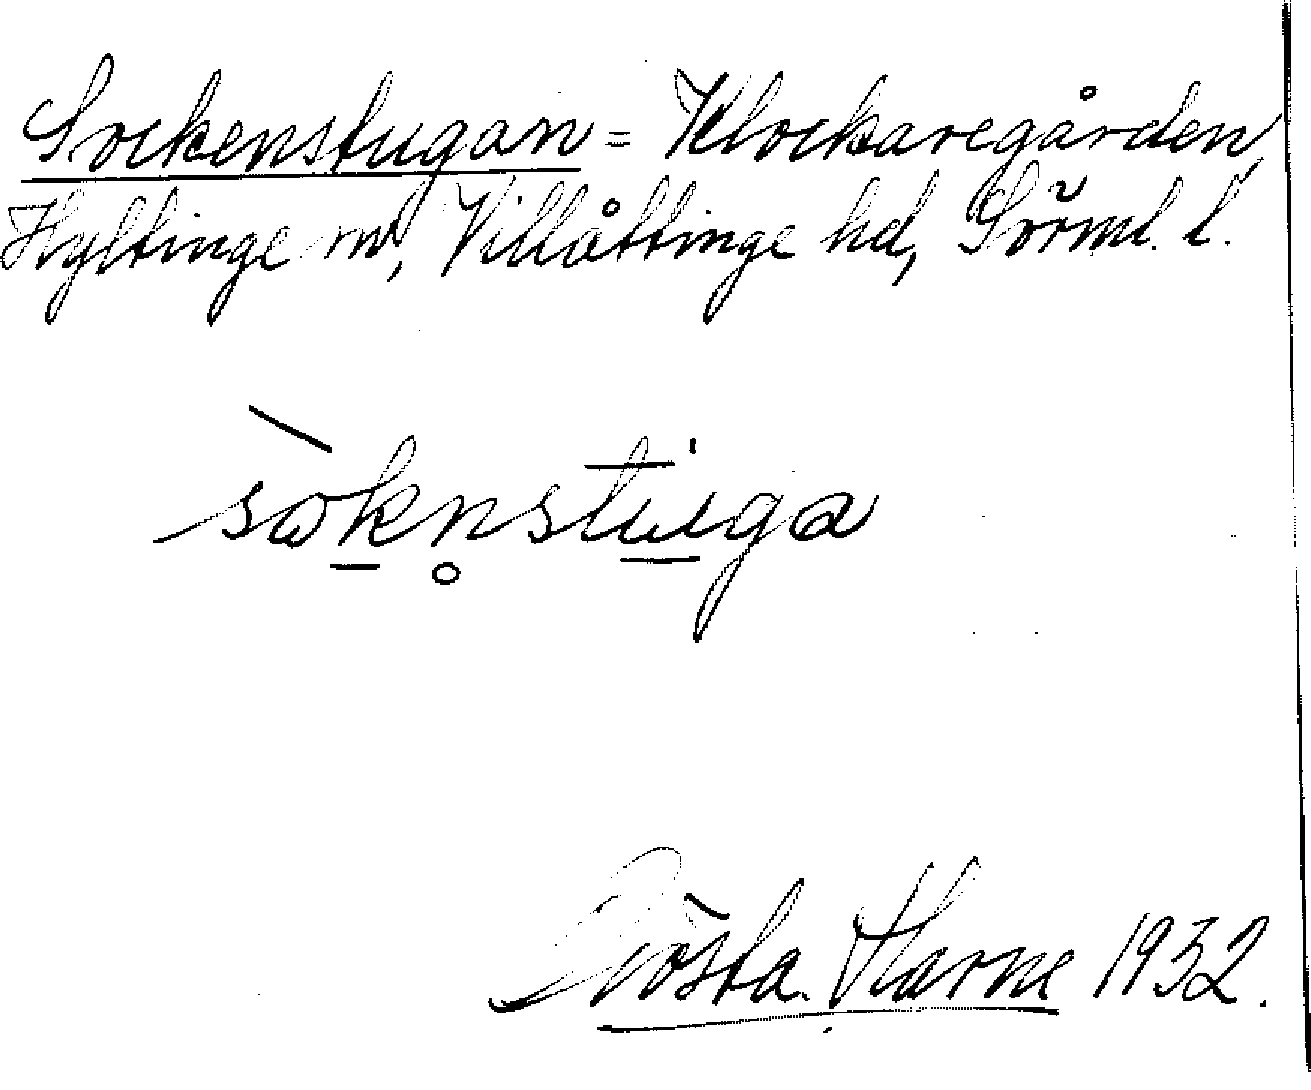 Sockenstugan = Klockaregården,
Hyltinge sn, Villåttinge hd, Sörml. l.
sòkn̥stuga
Gösta Harne 1932.